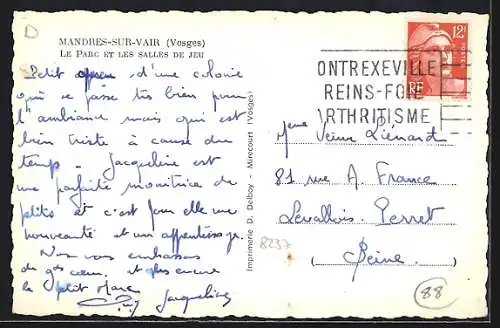 D
MANDRES-SUR-VAIR (Vosges)
LE PARC ET LES SALLES DE JEU
Petit aperçu d'une colonie
qui se passe très bien pour
l'ambiance mais qui est
bien triste à cause du
temps. Jacqueline est
une parfaite monitrice de
petits et c'est pour elle une
nouveauté et un apprentissage.
Nous vous embrassons
de gds cœur et plus encore
le petit Marc
Jacqueline
Imprimerie D. Delboy - Mirecourt (Vosges)
12F
POSTES
RF
ONTREXEVILLE
REINS-FOIE
ARTHRITISME
Mme Veuve Liénard
81 rue A. France
Levallois-Perret
(Seine)
8237
88